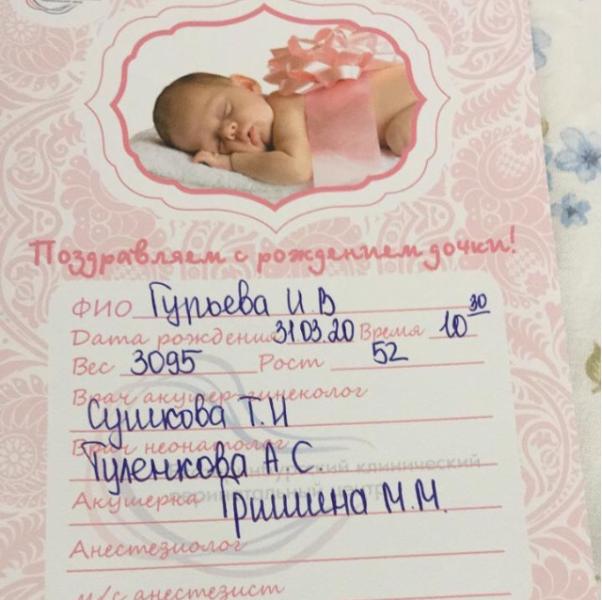 Поздравляем с рождением дочки!
ФИО Гурьева И.В
Дата рождения 31 03. 20 Время 10 30
Вес 3095 Рост 52
Врач акушер-гинеколог
Сушкова Т.И
Врач неонатолог
Гуленкова А.С
клинический
Акушерка Гришина М.М.
перинатальный центр
Анестезиолог
м/с анестезист